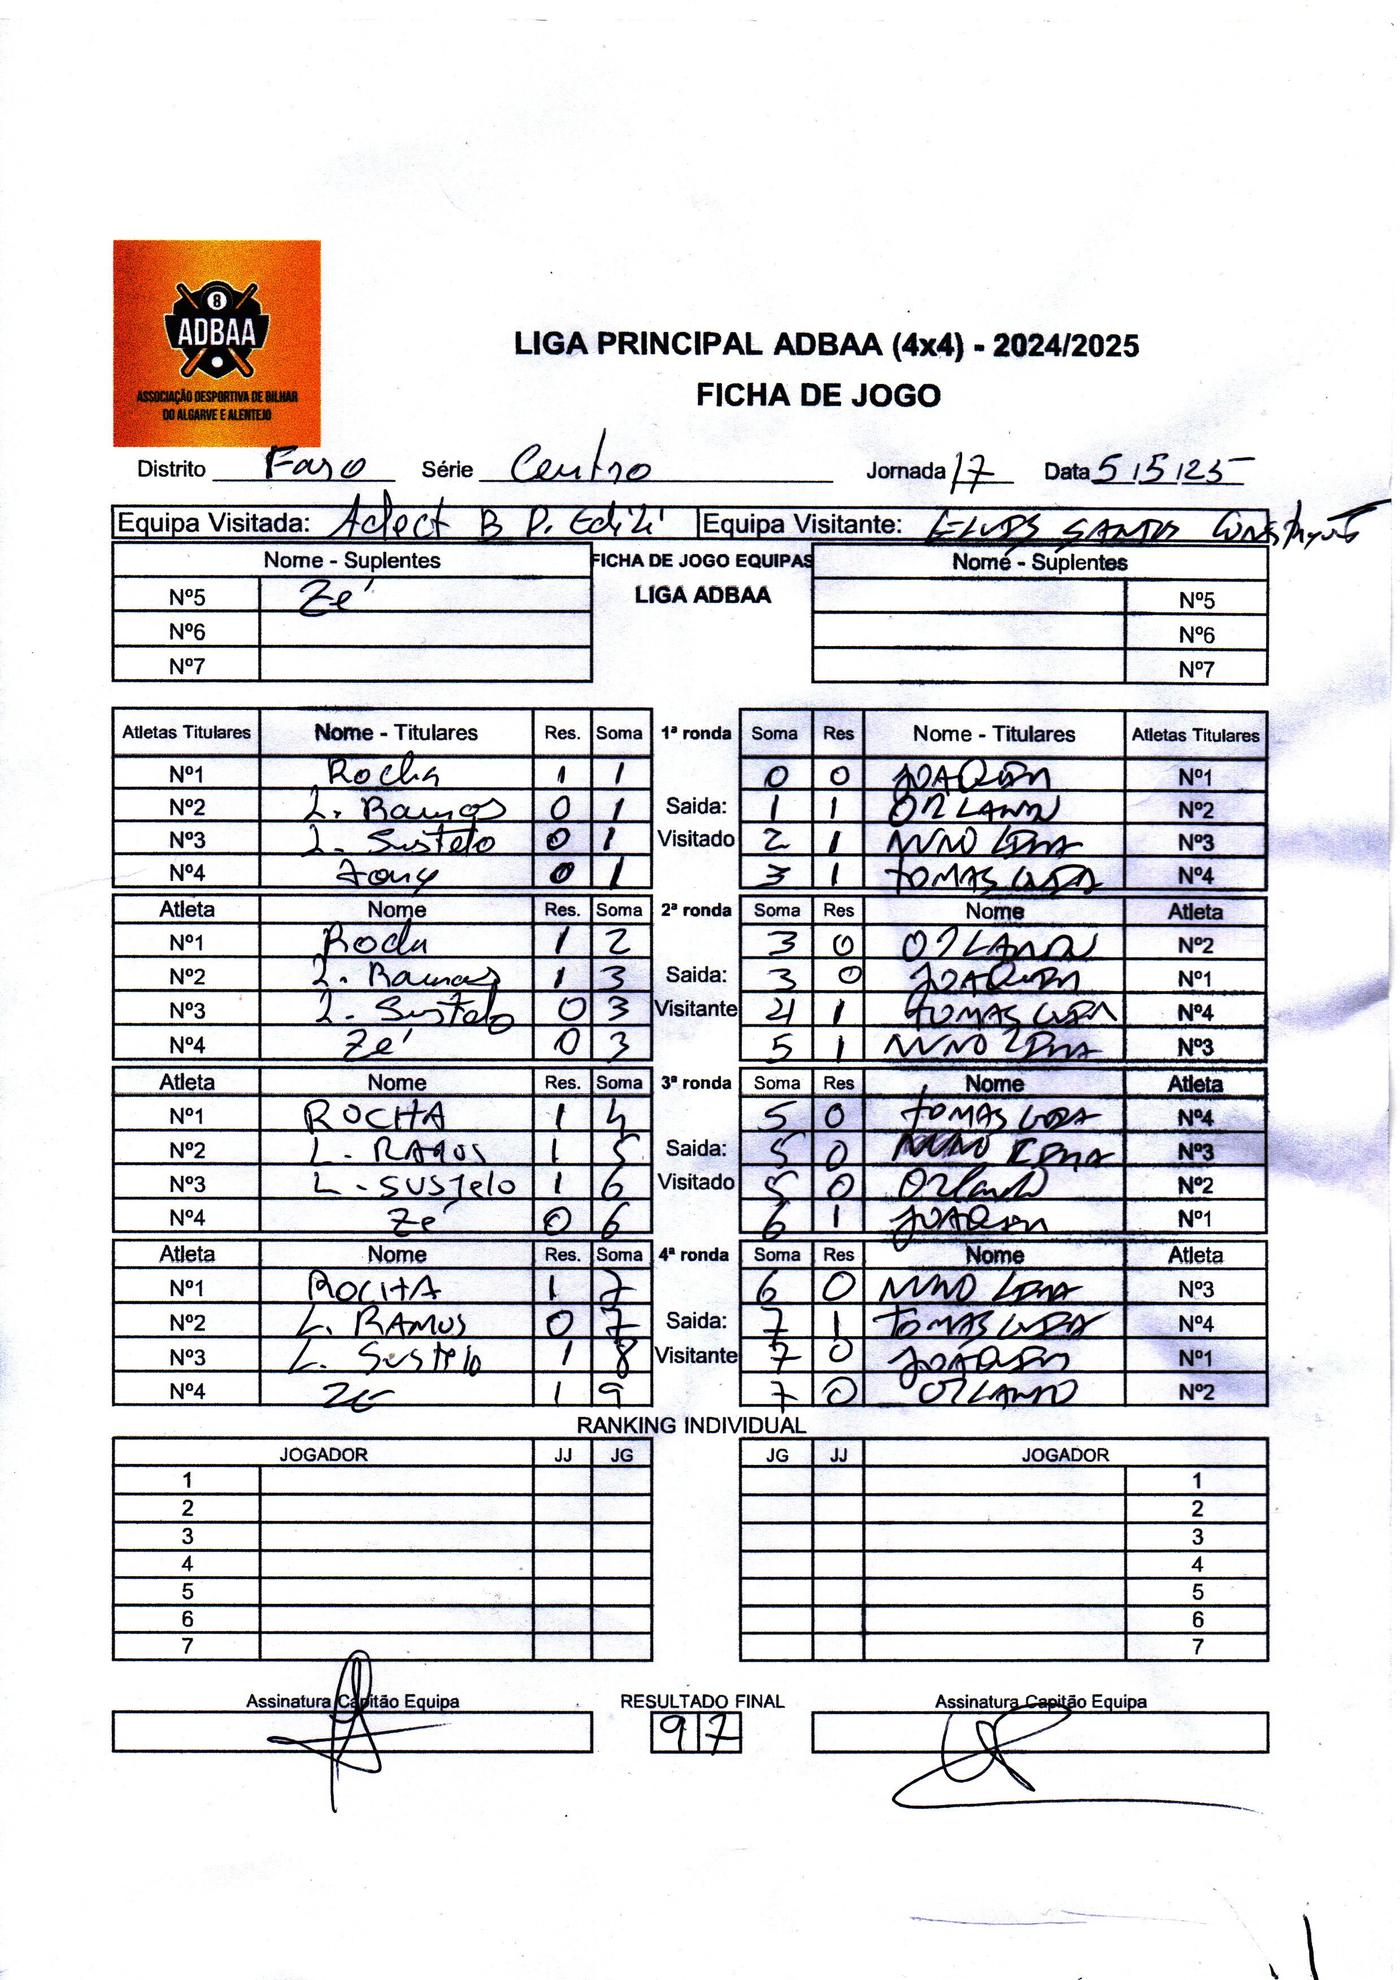 8
ADBAA
ASSOCIAÇÃO DESPORTIVA DE BILHAR
DO ALGARVE E ALENTEJO
LIGA PRINCIPAL ADBAA (4x4) - 2024/2025
FICHA DE JOGO
Distrito Faro Série Centro Jornada 17 Data 5/5/25
Equipa Visitada: Aclect B P. Equipa Visitante: ELVIS SANTOS
Nome - Suplentes FICHA DE JOGO EQUIPAS Nome - Suplentes
Nº5 Zé LIGA ADBAA Nº5
Nº6 Nº6
Nº7 Nº7
Atletas Titulares Nome - Titulares Res. Soma 1ª ronda Soma Res Nome - Titulares Atletas Titulares
Nº1 Rocha 1 1 0 0 JOAQUIM Nº1
Nº2 L. Ramos 0 1 Saida: 1 1 ORLANDO Nº2
Nº3 L. Sustelo 0 1 Visitado 2 1 NUNO LIMA Nº3
Nº4 Tony 0 1 3 1 TOMAS Nº4
Atleta Nome Res. Soma 2ª ronda Soma Res Nome Atleta
Nº1 Rocha 1 2 3 0 ORLANDO Nº2
Nº2 L. Ramos 1 3 Saida: 3 0 JOAQUIM Nº1
Nº3 L. Sustelo 0 3 Visitante 4 1 TOMAS Nº4
Nº4 Zé 0 3 5 1 NUNO LIMA Nº3
Atleta Nome Res. Soma 3ª ronda Soma Res Nome Atleta
Nº1 ROCHA 1 4 5 0 TOMAS Nº4
Nº2 L. RAMOS 1 5 Saida: 5 0 NUNO LIMA Nº3
Nº3 L. SUSTELO 1 6 Visitado 5 0 Orlando Nº2
Nº4 Zé 0 6 6 1 JOAQUIM Nº1
Atleta Nome Res. Soma 4ª ronda Soma Res Nome Atleta
Nº1 ROCHA 1 7 6 0 NUNO LIMA Nº3
Nº2 L. RAMOS 0 7 Saida: 7 1 TOMAS Nº4
Nº3 L. Sustelo 1 8 Visitante 7 0 JOAQUIM Nº1
Nº4 ZE 1 9 7 0 ORLANDO Nº2
RANKING INDIVIDUAL
JOGADOR JJ JG JG JJ JOGADOR
1 1
2 2
3 3
4 4
5 5
6 6
7 7
Assinatura Capitão Equipa RESULTADO FINAL Assinatura Capitão Equipa
9 7